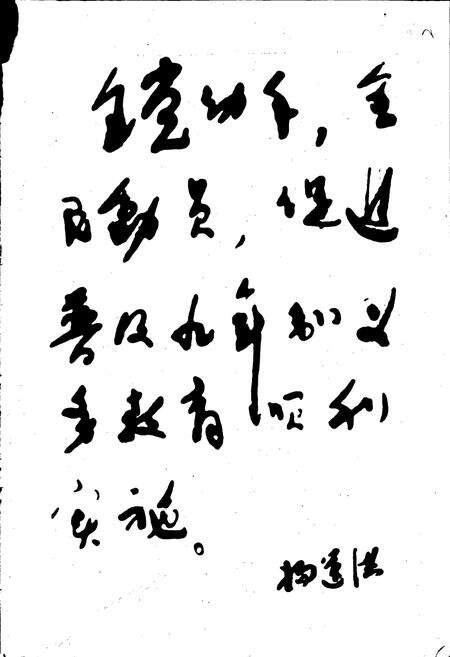 全党动手，全
民動员，促进
普及九年制义
务教育顺利
实施。
杨